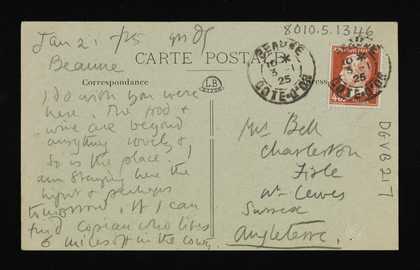 8010.5.1346
Jan 2. /25
Beaune
CARTE POSTALE
Correspondance
LB
BEAUNE
3 -1
25
COTE-D'OR
BEAUNE
3 -1
25
COTE-D'OR
I do wish you were
here. The food &
wine are beyond
anything lovely &
so is the place. I
am staying here the
night & perhaps
tomorrow, if I can
find Copeau who lives
6 miles off in the country
Mrs Bell
Charleston
Firle
Nr Lewes
Sussex
Angleterre.
DGVB217